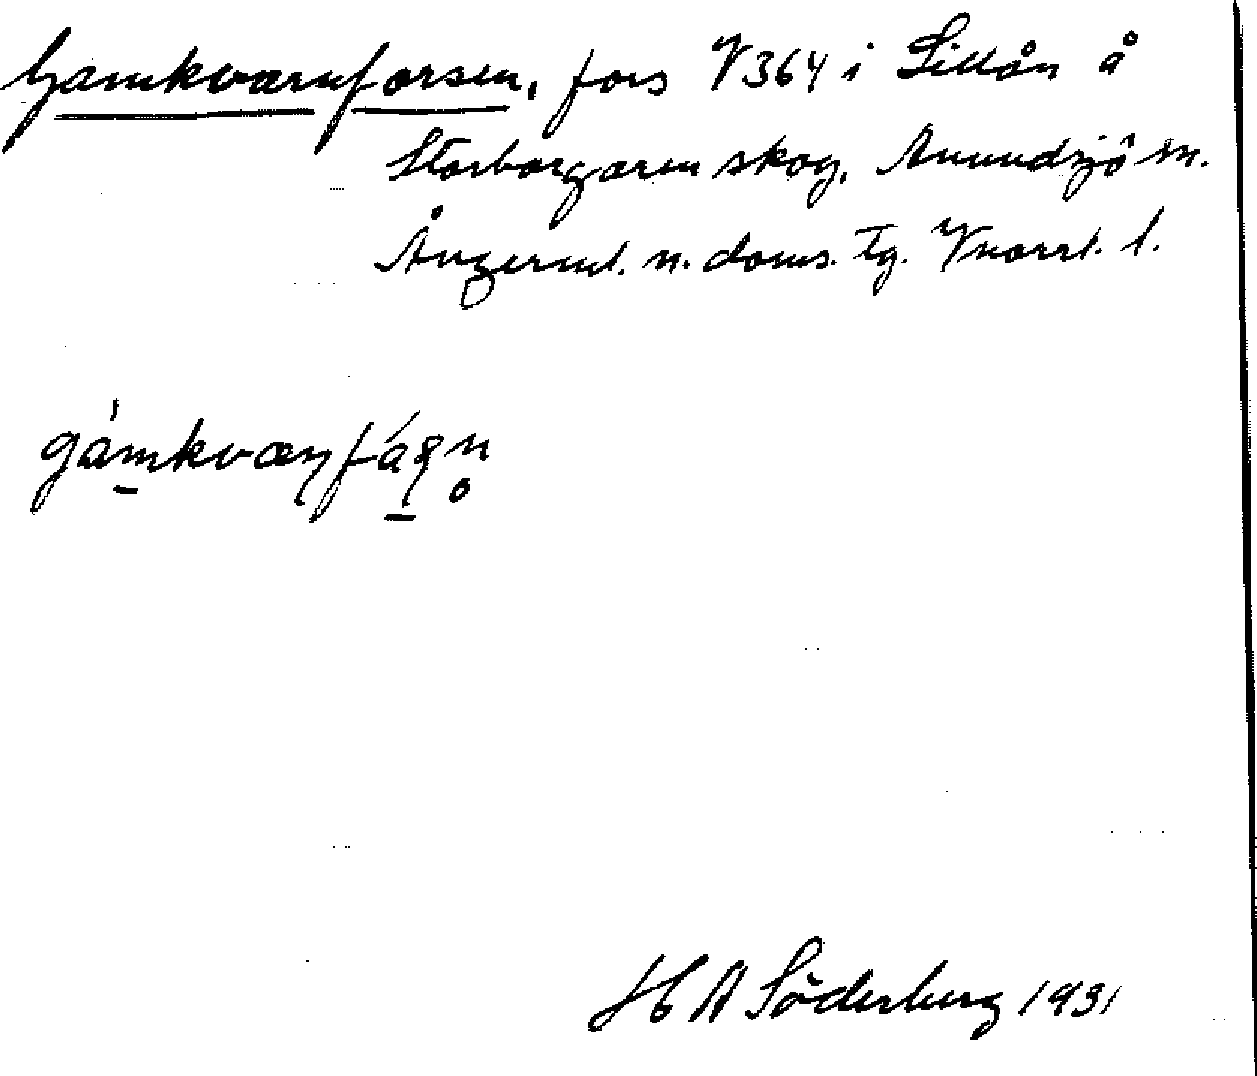 Gamkvarnforsen, fors V 364 i Lillån å
Storborgaren skog, Anundsjö sn.
Ångerml. n. doms. tg. Vnorrl. l.
gámkvæɳfáʂn̥
H A Söderberg 1931